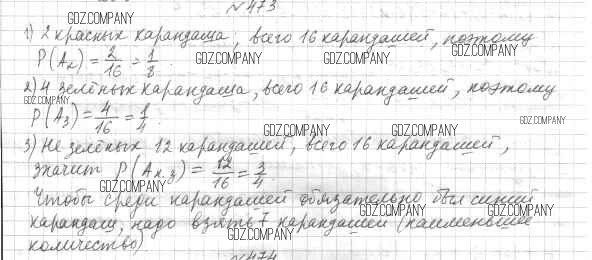 №473
GDZ.COMPANY
1) 2 красных карандаша, всего 16 карандашей, поэтому
P(Aк) = 2/16 = 1/8.
GDZ.COMPANY GDZ.COMPANY GDZ.COMPANY
2) 4 зелёных карандаша, всего 16 карандашей, поэтому
GDZ.COMPANY
P(A3) = 4/16 = 1/4.
GDZ.COMPANY GDZ.COMPANY GDZ.COMPANY
3) Не зелёных 12 карандашей, всего 16 карандашей,
значит P(Aн.з) = 12/16 = 3/4.
GDZ.COMPANY
Чтобы среди карандашей обязательно был синий
GDZ.COMPANY GDZ.COMPANY
карандаш, надо взять 7 карандашей (наименьшее
GDZ.COMPANY
количество)
№474